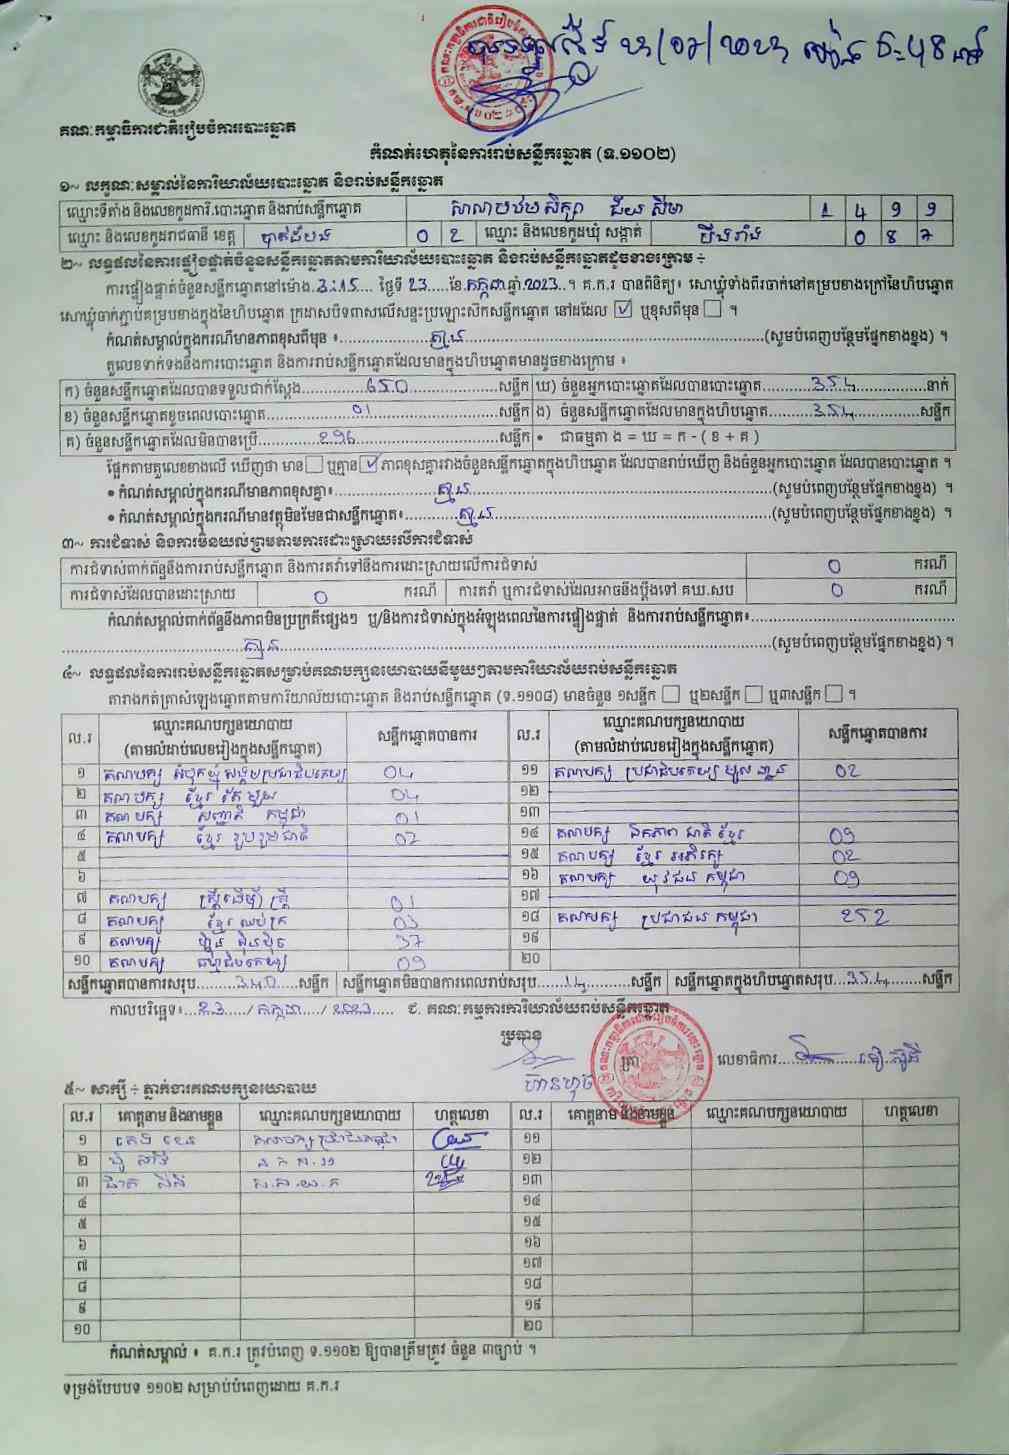 គណៈកម្មាធិការជាតិរៀបចំការបោះឆ្នោត
កំណត់ហេតុនៃការរាប់សន្លឹកឆ្នោត (ទ.១១០២)
១~ លក្ខណៈសម្គាល់នៃការិយាល័យបោះឆ្នោត និងរាប់សន្លឹកឆ្នោត
ឈ្មោះទីតាំង និងលេខកូដការិ.បោះឆ្នោត និងរាប់សន្លឹកឆ្នោត សាលាបឋមសិក្សា ជ័យ សីមា 1 4 9 9
ឈ្មោះ និងលេខកូដរាជធានី ខេត្ត បាត់ដំបង 0 2 ឈ្មោះ និងលេខកូដឃុំ សង្កាត់ 0 8 7
២~ លទ្ធផលនៃការផ្ទៀងផ្ទាត់ចំនួនសន្លឹកឆ្នោតតាមការិយាល័យបោះឆ្នោត និងរាប់សន្លឹកឆ្នោតដូចខាងក្រោម ÷
ការផ្ទៀងផ្ទាត់ចំនួនសន្លឹកឆ្នោតនៅម៉ោង.3:15.... ថ្ងៃទី 23....ខែ.កក្កដា.ឆ្នាំ.2023..។ គ.ក.រ បានពិនិត្យ៖ សោឃ្លុំទាំងពីរចាក់នៅគម្របខាងក្រៅនៃហិបឆ្នោត
សោឃ្លុំចាក់ភ្ជាប់គម្របខាងក្នុងនៃហិបឆ្នោត ក្រដាសបិទពាសលើសន្ទះប្រឡោះស៊កសន្លឹកឆ្នោត នៅដដែល ☑ ឬខុសពីមុន ☐ ។
កំណត់សម្គាល់ក្នុងករណីមានភាពខុសពីមុន ៖......គ្មាន......(សូមបំពេញបន្ថែមផ្នែកខាងខ្នង) ។
តួលេខទាក់ទងនឹងការបោះឆ្នោត និងការរាប់សន្លឹកឆ្នោតដែលមានក្នុងហិបឆ្នោតមានដូចខាងក្រោម ៖
ក) ចំនួនសន្លឹកឆ្នោតដែលបានទទួលជាក់ស្តែង......650......សន្លឹក ឃ) ចំនួនអ្នកបោះឆ្នោតដែលបានបោះឆ្នោត......354......នាក់
ខ) ចំនួនសន្លឹកឆ្នោតខូចពេលបោះឆ្នោត......01......សន្លឹក ង) ចំនួនសន្លឹកឆ្នោតដែលមានក្នុងហិបឆ្នោត......354......សន្លឹក
គ) ចំនួនសន្លឹកឆ្នោតដែលមិនបានប្រើ......296......សន្លឹក • ជាធម្មតា ង = ឃ = ក - ( ខ + គ )
ផ្អែកតាមតួលេខខាងលើ ឃើញថា មាន ☐ ឬគ្មាន ☑ ភាពខុសគ្នារវាងចំនួនសន្លឹកឆ្នោតក្នុងហិបឆ្នោត ដែលបានរាប់ឃើញ និងចំនួនអ្នកបោះឆ្នោត ដែលបានបោះឆ្នោត ។
• កំណត់សម្គាល់ក្នុងករណីមានភាពខុសគ្នា៖......គ្មាន......(សូមបំពេញបន្ថែមផ្នែកខាងខ្នង) ។
• កំណត់សម្គាល់ក្នុងករណីមានវត្ថុមិនមែនជាសន្លឹកឆ្នោត៖......គ្មាន......(សូមបំពេញបន្ថែមផ្នែកខាងខ្នង) ។
៣~ ការជំទាស់ និងការមិនយល់ព្រមតាមការដោះស្រាយលើការជំទាស់
ការជំទាស់ពាក់ព័ន្ធនឹងការរាប់សន្លឹកឆ្នោត និងការតវ៉ាទៅនឹងការដោះស្រាយលើការជំទាស់ 0 ករណី
ការជំទាស់ដែលបានដោះស្រាយ 0 ករណី ការតវ៉ា ឬការជំទាស់ដែលអាចនឹងប្តឹងទៅ គឃ.សប 0 ករណី
កំណត់សម្គាល់ពាក់ព័ន្ធនឹងភាពមិនប្រក្រតីផ្សេងៗ ឬ/និងការជំទាស់ក្នុងអំឡុងពេលនៃការផ្ទៀងផ្ទាត់ និងការរាប់សន្លឹកឆ្នោត៖......
......គ្មាន......(សូមបំពេញបន្ថែមផ្នែកខាងខ្នង) ។
៤~ លទ្ធផលនៃការរាប់សន្លឹកឆ្នោតសម្រាប់គណបក្សនយោបាយនីមួយៗតាមការិយាល័យរាប់សន្លឹកឆ្នោត
តារាងកត់ត្រាសំឡេងឆ្នោតតាមការិយាល័យបោះឆ្នោត និងរាប់សន្លឹកឆ្នោត (ទ.១១០៨) មានចំនួន ១សន្លឹក ☐ ឬ២សន្លឹក ☐ ឬ៣សន្លឹក ☐ ។
ល.រ ឈ្មោះគណបក្សនយោបាយ (តាមលំដាប់លេខរៀងក្នុងសន្លឹកឆ្នោត) សន្លឹកឆ្នោតបានការ ល.រ ឈ្មោះគណបក្សនយោបាយ (តាមលំដាប់លេខរៀងក្នុងសន្លឹកឆ្នោត) សន្លឹកឆ្នោតបានការ
១ គណបក្ស សំបុកឃ្មុំសង្គមប្រជាធិបតេយ្យ 04 ១១ គណបក្ស ប្រជាធិបតេយ្យ មូលដ្ឋាន 02
២ គណបក្ស ខ្មែរ តែ មួយ 04 ១២
៣ គណបក្ស សញ្ជាតិ កម្ពុជា 01 ១៣
៤ គណបក្ស ខ្មែរ រួបរួមជាតិ 07 ១៤ គណបក្ស ឯកភាព ជាតិ ខ្មែរ 09
៥ ១៥ គណបក្ស ខ្មែរ អភិរក្ស 02
៦ ១៦ គណបក្ស យុវជន កម្ពុជា 09
៧ គណបក្ស ស្ត្រីដើម្បី ស្ត្រី 01 ១៧
៨ គណបក្ស ខ្មែរ ឈប់ក្រ 03 ១៨ គណបក្ស ប្រជាជន កម្ពុជា 252
៩ គណបក្ស ហ្វ៊ុនស៊ិនប៉ិច 37 ១៩
១០ គណបក្ស ធម្មាធិបតេយ្យ 09 ២០
សន្លឹកឆ្នោតបានការសរុប......340......សន្លឹក សន្លឹកឆ្នោតមិនបានការពេលរាប់សរុប......14......សន្លឹក សន្លឹកឆ្នោតក្នុងហិបឆ្នោតសរុប...354......សន្លឹក
កាលបរិច្ឆេទ៖...23...../ កក្កដា..../ 2023..... ជ. គណៈកម្មការការិយាល័យរាប់សន្លឹកឆ្នោត
ប្រធាន
ត្រា លេខាធិការ......
៥~ សាក្សី ÷ ភ្នាក់ងារគណបក្សនយោបាយ
ល.រ គោត្តនាម និងនាមខ្លួន ឈ្មោះគណបក្សនយោបាយ ហត្ថលេខា ល.រ គោត្តនាម និងនាមខ្លួន ឈ្មោះគណបក្សនយោបាយ ហត្ថលេខា
១ គណបក្ស ប្រជាជនកម្ពុជា ១១
២ ១២
៣ ១៣
៤ ១៤
៥ ១៥
៦ ១៦
៧ ១៧
៨ ១៨
៩ ១៩
១០ ២០
កំណត់សម្គាល់ ៖ គ.ក.រ ត្រូវបំពេញ ទ.១១០២ ឱ្យបានត្រឹមត្រូវ ចំនួន ៣ច្បាប់ ។
ទម្រង់បែបបទ ១១០២ សម្រាប់បំពេញដោយ គ.ក.រ